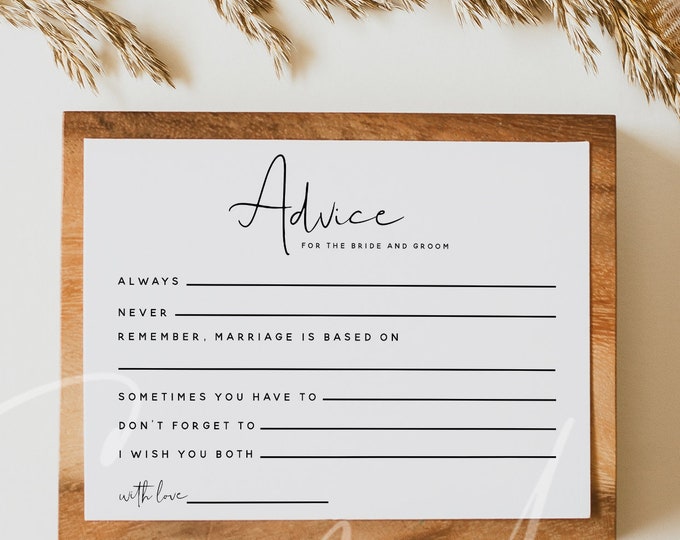 Advice
FOR THE BRIDE AND GROOM
ALWAYS
NEVER
REMEMBER, MARRIAGE IS BASED ON
SOMETIMES YOU HAVE TO
DON'T FORGET TO
I WISH YOU BOTH
with love